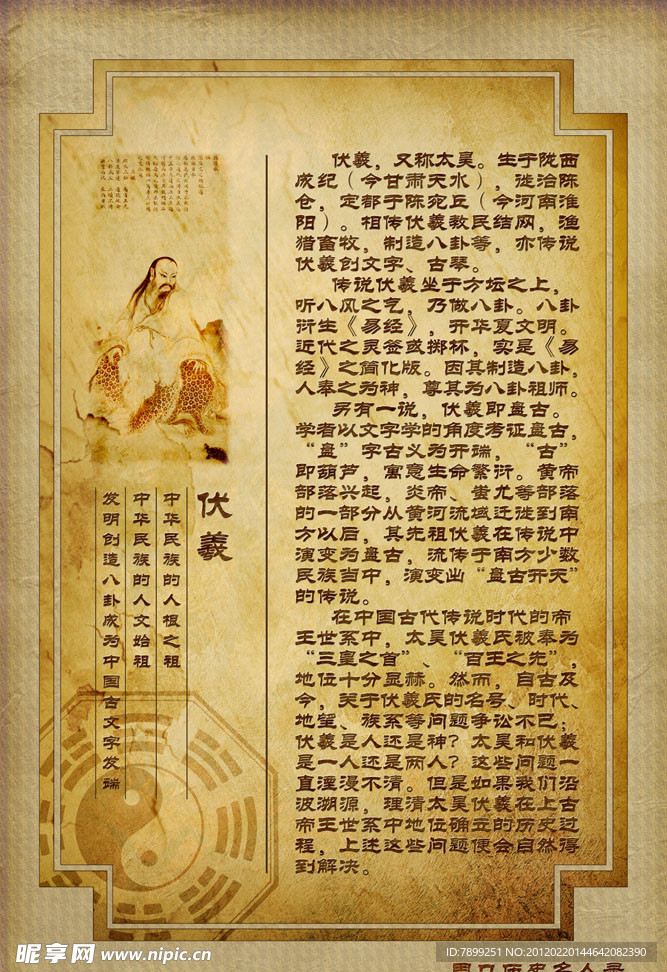 伏羲，又称太昊。生于陇西
成纪（今甘肃天水），徙治陈
仓，定都于陈宛丘（今河南淮
阳）。相传伏羲教民结网，渔
猎畜牧，制造八卦等，亦传说
伏羲创文字、古琴。
传说伏羲坐于方坛之上，
听八风之气，乃做八卦。八卦
衍生《易经》，开华夏文明。
近代之灵签或掷杯，实是《易
经》之简化版。因其制造八卦，
人奉之为神，尊其为八卦祖师。
另有一说，伏羲即盘古。
学者以文字学的角度考证盘古，
“盘”字古义为开端，“古”
即葫芦，寓意生命繁衍。黄帝
部落兴起，炎帝、蚩尤等部落
的一部分从黄河流域迁徙到南
方以后，其先祖伏羲在传说中
演变为盘古，流传于南方少数
民族当中，演变出“盘古开天”
的传说。
在中国古代传说时代的帝
王世系中，太昊伏羲氏被奉为
“三皇之首”、“百王之先”，
地位十分显赫。然而，自古及
今，关于伏羲氏的名号、时代、
地望、族系等问题争讼不已；
伏羲是人还是神？太昊和伏羲
是一人还是两人？这些问题一
直湮漫不清。但是如果我们沿
波溯源，理清太昊伏羲在上古
帝王世系中地位确立的历史过
程，上述这些问题便会自然得
到解决。
伏羲
中华民族的人根之祖
中华民族的人文始祖
发明创造八卦成为中国古文字发端
昵享网 www.nipic.cn
ID:7899251 NO:20120220144642082390